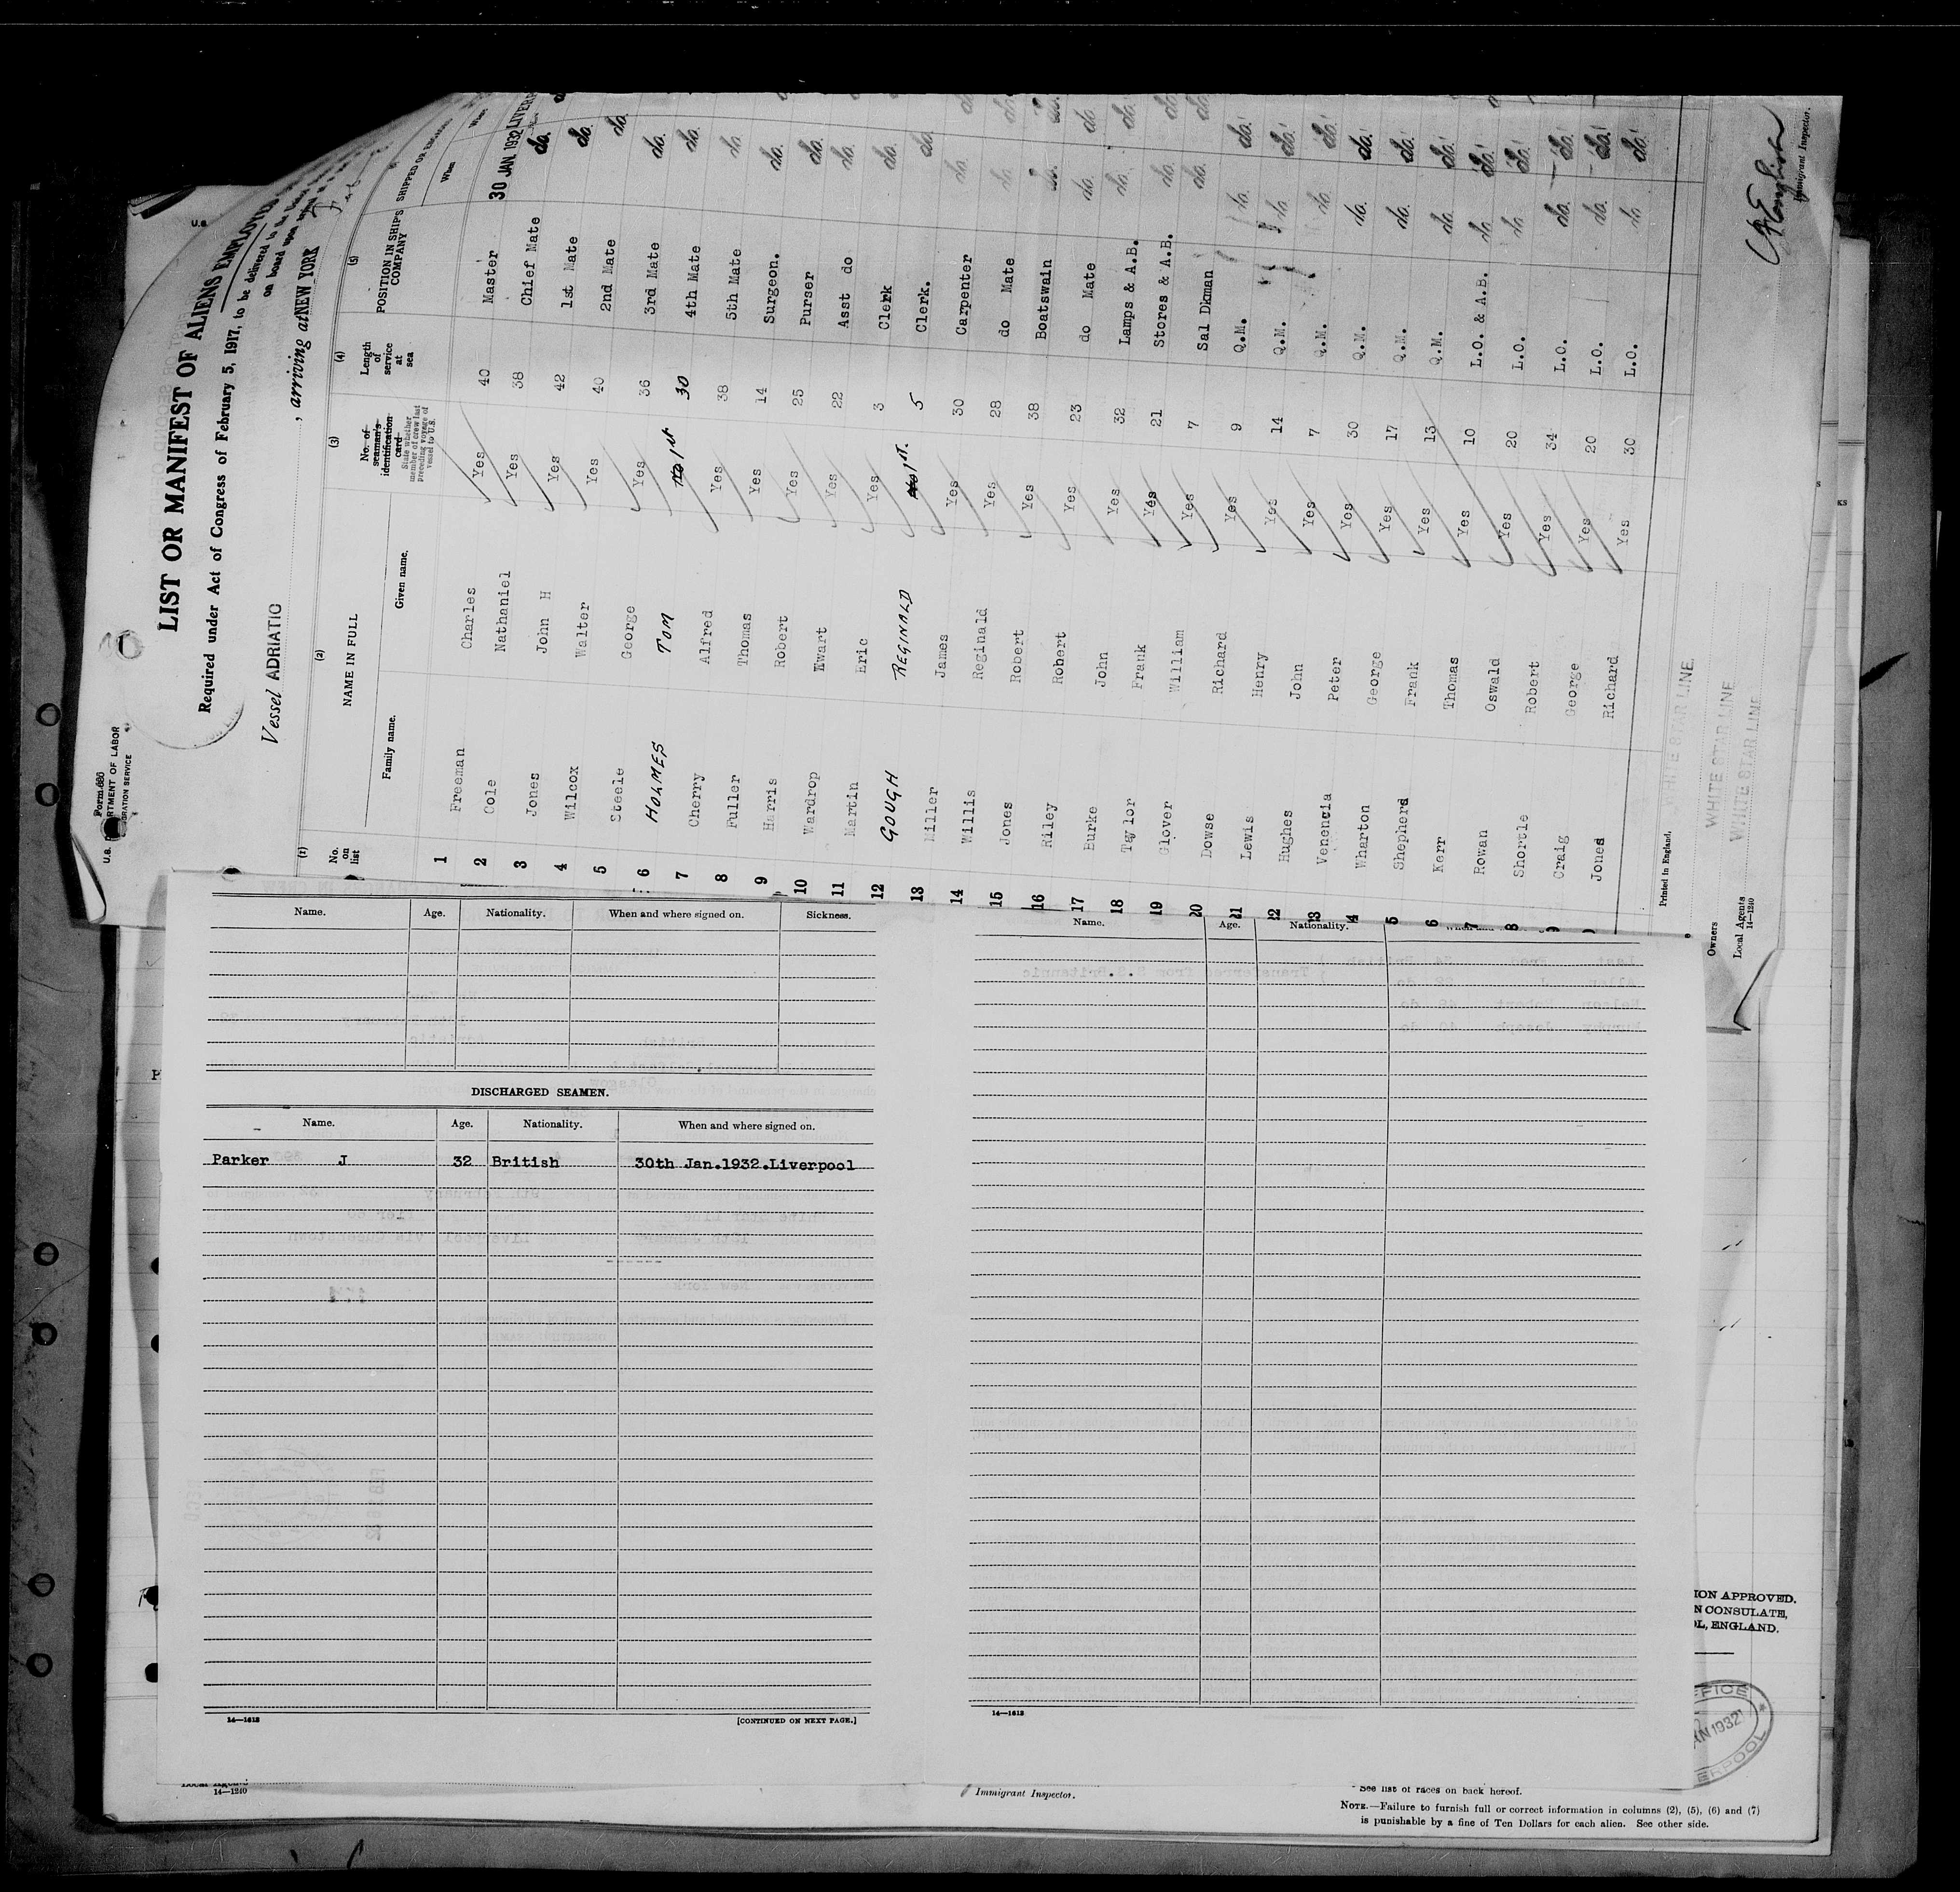 U.S. DEPARTMENT OF LABOR
LIST OR MANIFEST OF ALIENS EMPLOYED
Required under Act of Congress of February 5, 1917, to be delivered to the United States
Vessel ADRIATIC , arriving at NEW YORK
(1) (2) (3) (4) (5)
No. on list NAME IN FULL No. of seaman's identification card Length of service at sea POSITION IN SHIP'S COMPANY SHIPPED OR ENGAGED
State whether member of crew last preceding voyage of vessel to U.S.
Family name. Given name. When Where
1 Freeman Charles Yes 40 Master 30 JAN. 1932 LIVERP
2 Cole Nathaniel Yes 38 Chief Mate do. do.
3 Jones John H Yes 42 1st Mate do.
4 Wilcox Walter Yes 40 2nd Mate do.
5 Steele George Yes 36 3rd Mate do.
6 HOLMES TOM No 1st 30 4th Mate do.
7 Cherry Alfred Yes 38 5th Mate do.
8 Fuller Thomas Yes 14 Surgeon. do.
9 Harris Robert Yes 25 Purser do.
10 Wardrop Ewart Yes 22 Asst do do.
11 Martin Eric Yes 3 Clerk do.
12 GOUGH REGINALD No 1st. 5 Clerk. do.
13 Miller James Yes 30 Carpenter do. do.
14 Willis Reginald Yes 28 do Mate do. do.
15 Jones Robert Yes 38 Boatswain do. do.
16 Riley Robert Yes 23 do Mate do. do.
17 Burke John Yes 32 Lamps & A.B. do. do.
18 Taylor Frank Yes 21 Stores & A.B. do. do.
19 Glover William Yes 7 Sal Dkman do. do.
20 Dowse Richard Yes 9 Q.M. do. do.
21 Lewis Henry Yes 14 Q.M. do. do.
22 Hughes John Yes 7 Q.M. do. do.
23 Venencia Peter Yes 30 Q.M. do. do.
4 Wharton George Yes 17 Q.M. do. do.
5 Shepherd Frank Yes 13 Q.M. do. do.
6 Kerr Thomas Yes 10 L.O. & A.B. do. do.
7 Rowan Oswald Yes 20 L.O. do. do.
8 Shortle Robert Yes 34 L.O. do. do.
9 Craig George Yes 20 L.O. do. do.
Jones Richard Yes 30 L.O. do. do.
Printed in England.
WHITE STAR LINE.
Owners WHITE STAR LINE
Local Agents WHITE STAR LINE
14—1240
Immigrant Inspector.
Name. Age. Nationality. When and where signed on. Sickness.
DISCHARGED SEAMEN.
Name. Age. Nationality. When and where signed on.
Parker J 32 British 30th Jan.1932.Liverpool
14—1613 [CONTINUED ON NEXT PAGE.]
Name. Age. Nationality.
14—1613
ION APPROVED.
N CONSULATE,
OL, ENGLAND.
FFICE
AN 1932
ERPOOL
14—1240
Immigrant Inspector.
See list of races on back hereof.
NOTE.—Failure to furnish full or correct information in columns (2), (5), (6) and (7)
is punishable by a fine of Ten Dollars for each alien. See other side.